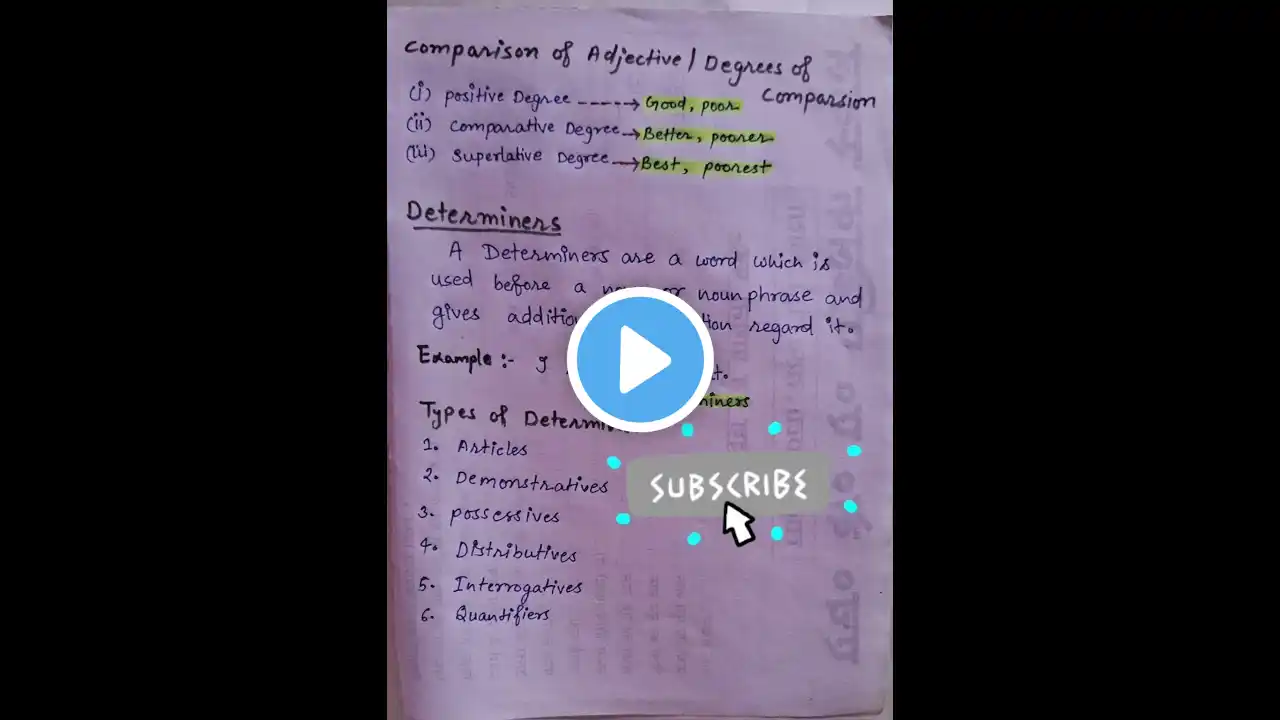 Comparison of Adjective / Degrees of
Comparsion
(i) positive Degree -----→ Good, poor
(ii) Comparative Degree → Better, poorer
(iii) Superlative Degree → Best, poorest
Determiners
A Determiners are a word which is
used before a or noun phrase and
gives regard it.
Example :-
Types of
1. Articles
2. Demonstratives
3. possessives
4. Distributives
5. Interrogatives
6. Quantifiers
SUBSCRIBE